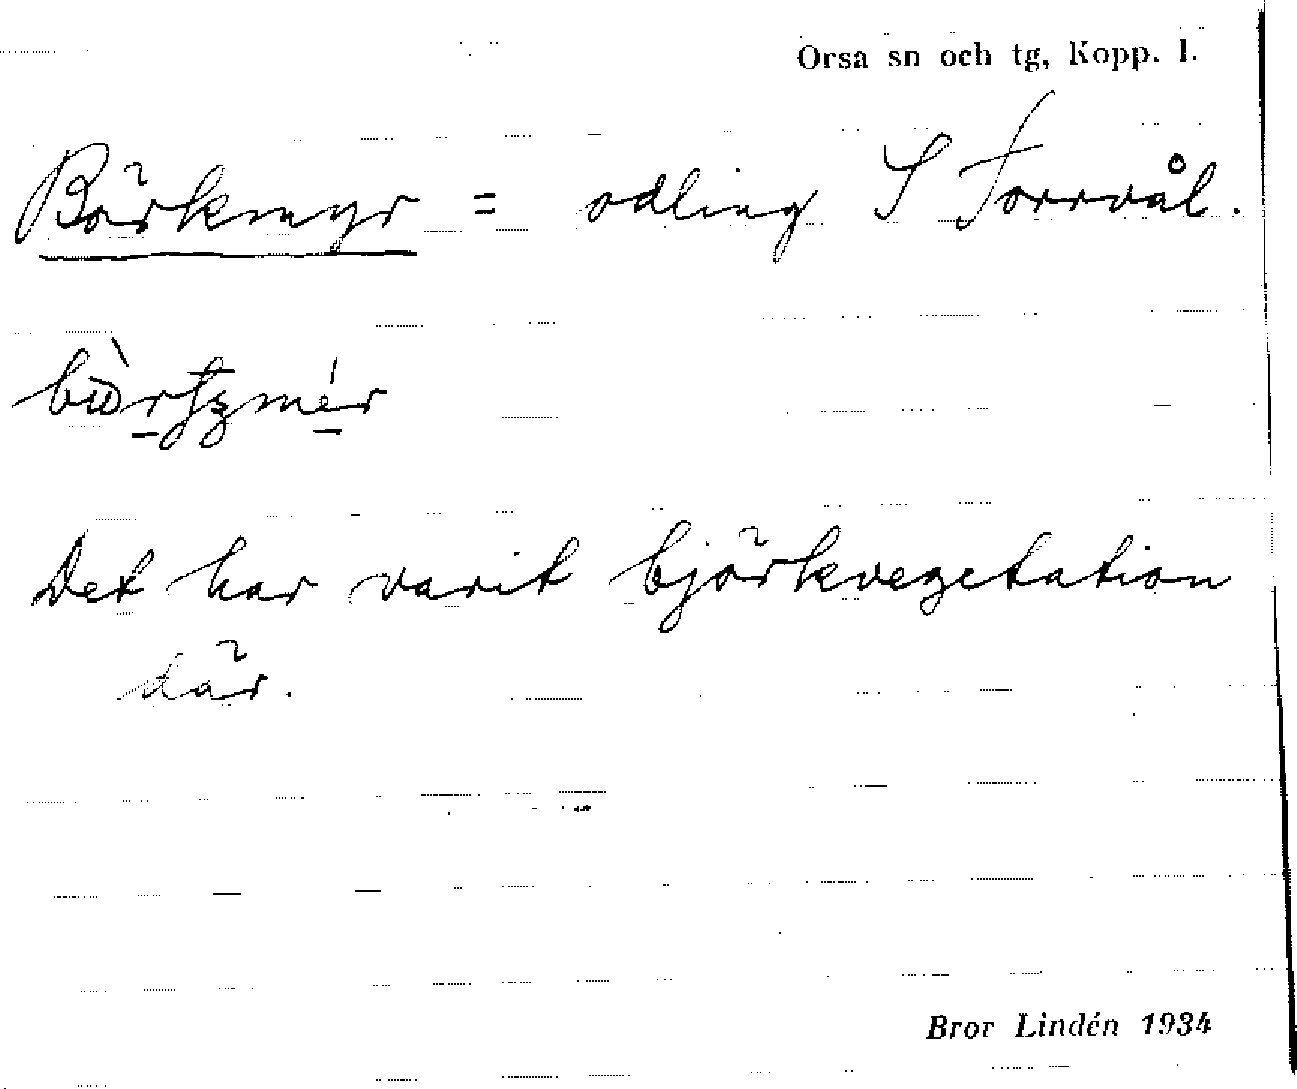 Orsa sn och tg, Kopp. l.
Börkmyr = odling S Torrvål.
Det har varit björkvegetation
där.
Bror Lindén 1934